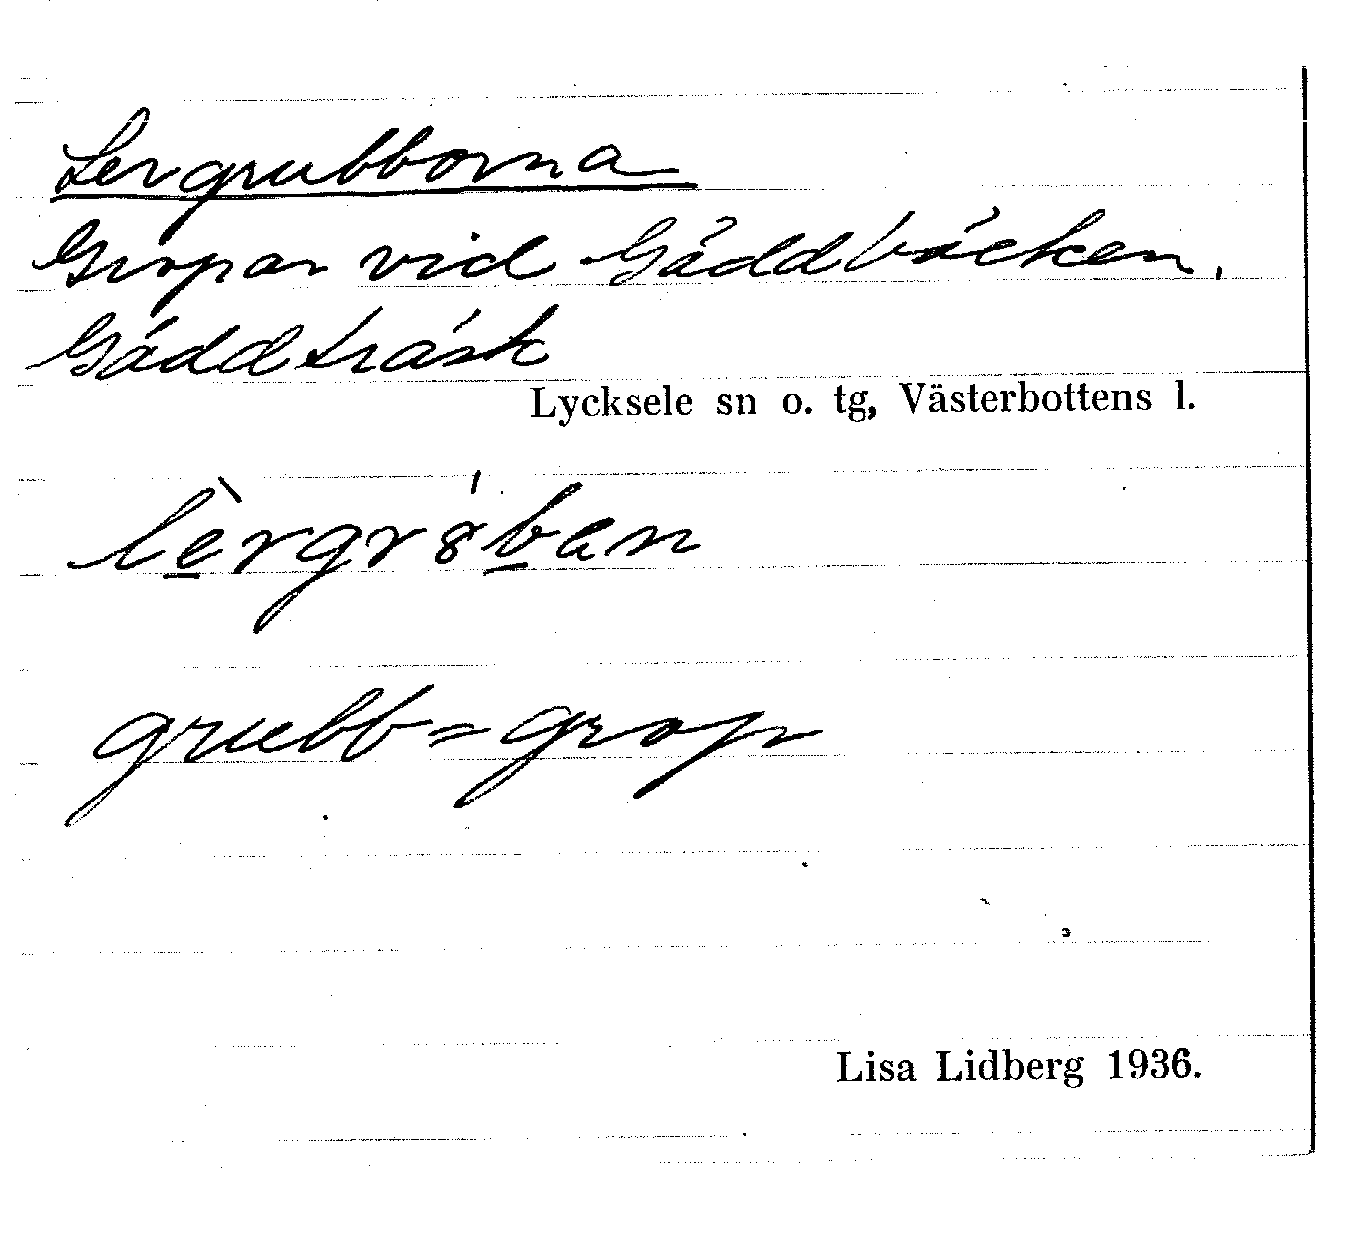 Lergrubborna
Gropar vid Gäddbäcken,
Gäddträsk
Lycksele sn o. tg, Västerbottens l.
grubb = grop
Lisa Lidberg 1936.